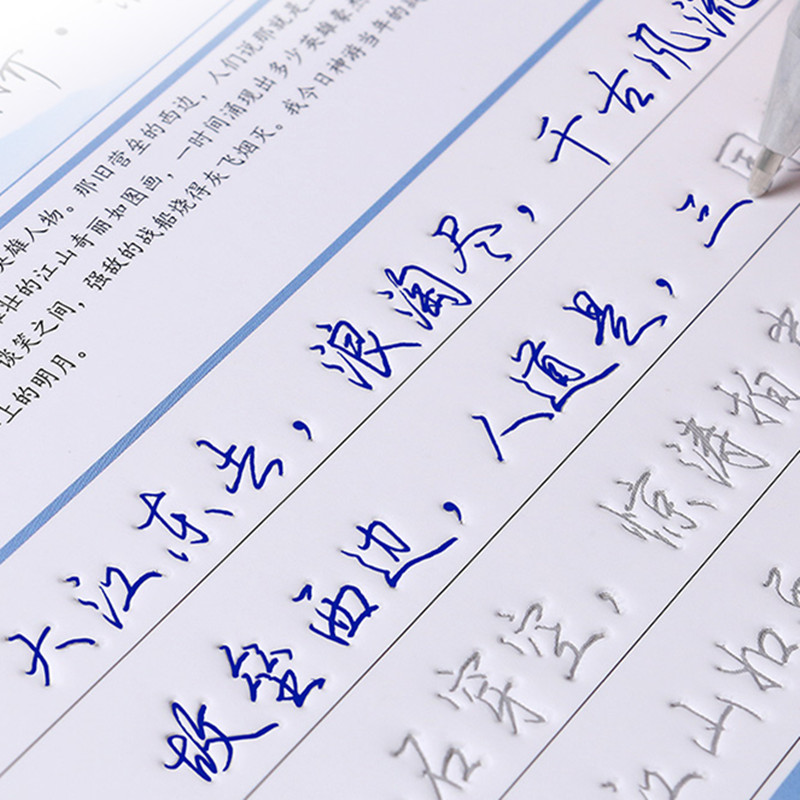 英雄人物。那旧营垒的西边，人们说那就是
壮的江山奇丽如图画，一时间涌现出多少英雄豪杰
谈笑之间，强敌的战船烧得灰飞烟灭。我今日神游当年的
上的明月。
大江东去，浪淘尽，千古风流
故垒西边，人道是，三国
石穿空，惊涛拍
江山如